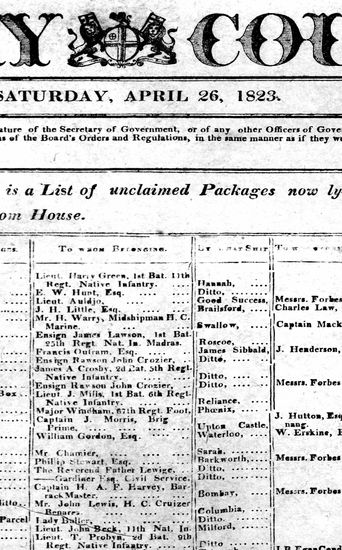 Y COU
SATURDAY, APRIL 26, 1823.
ature of the Secretary of Government, or of any other Officers of Gove
ns of the Board's Orders and Regulations, in the same manner as if they w
is a List of unclaimed Packages now ly
om House.
TO WHOM BELONGING. BY WHAT SHIP. TO W
Lieut. Harry Green, 1st Bat. 11th
Regt. Native Infantry. Hannah,
E. W. Hunt, Esq. Ditto,
Lieut. Auldjo. Good Success, Messrs. Forbes
J. H. Little, Esq. Brailsford, Charles Law,
Mr. H. Warry, Midshipman H. C.
Marine. Swallow, Captain Mack
Ensign James Lawson, 1st Bat.
25th Regt. Nat. In. Madras. Roscoe,
Francis Outram, Esq. James Sibbald, J. Henderson,
Ensign Rawson John Crozier, Ditto
James A Crosby, 2d Bat. 5th Regt.
Native Infantry. Ditto,
Ensign Rawson John Crozier, Ditto, Messrs. Forbes
Box Lieut. J. Mills, 1st Bat. 6th Regt.
Native Infantry. Reliance,
Major Windham, 67th Regt. Foot, Phœnix,
Captain J. Morris, Brig J. Hutton, Esq
Prime. Upton Castle, nang.
William Gordon, Esq. Waterloo, W. Erskine, E
Mr. Chamier, Sarah
Phillip Stewart Esq. Barkworth, Messrs. Forbes
The Reverend Father Lewige. Ditto,
Gardiner Esq. Civil Service. Ditto,
Captain H. A. F. Harvey, Bar-
rack Master. Bombay, Messrs. Forbes
ditto Mr. John Lewis, H. C. Cruizer
Benares. Columbia,
Parcel Lady Buller, Ditto,
Lieut. John Beck, 11th Nat. In. Milford,
Lieut. T. Probyn, 2d Bat. 9th
Regt. Native Infantry. Ditto,